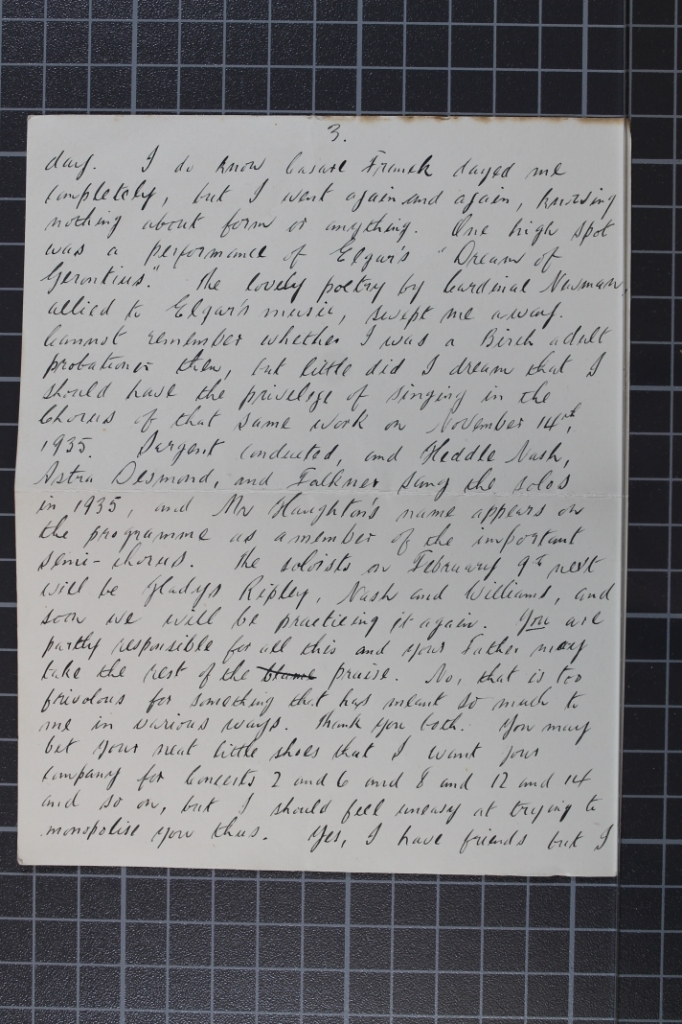 3.
day. I do know Cesare Franck dazed me
completely, but I went again and again, knowing
nothing about form or anything. One high spot
was a performance of Elgar's "Dream of
Gerontius". The lovely poetry by Cardinal Newman,
allied to Elgar's music, swept me away.
Cannot remember whether I was a Birch adult
probationer then, but little did I dream that I
should have the privelege of singing in the
Chorus of that same work on November 14th,
1935. Sargent conducted, and Heddle Nash,
Astra Desmond, and Falkner sang the solos
in 1935, and Mr Haughton's name appears on
the programme as a member of the important
semi-chorus. The soloists on February 9th next
will be Gladys Ripley, Nash and Williams, and
soon we will be practicing it again. You are
partly responsible for all this and your Father may
take the rest of the blame praise. No, that is too
frivolous for something that has meant so much to
me in various ways. Thank you both. You may
bet your neat little shoes that I want your
company for Concerts 2 and 6 and 8 and 12 and 14
and so on, but I should feel uneasy at trying to
monopolise you thus. Yes, I have friends but I